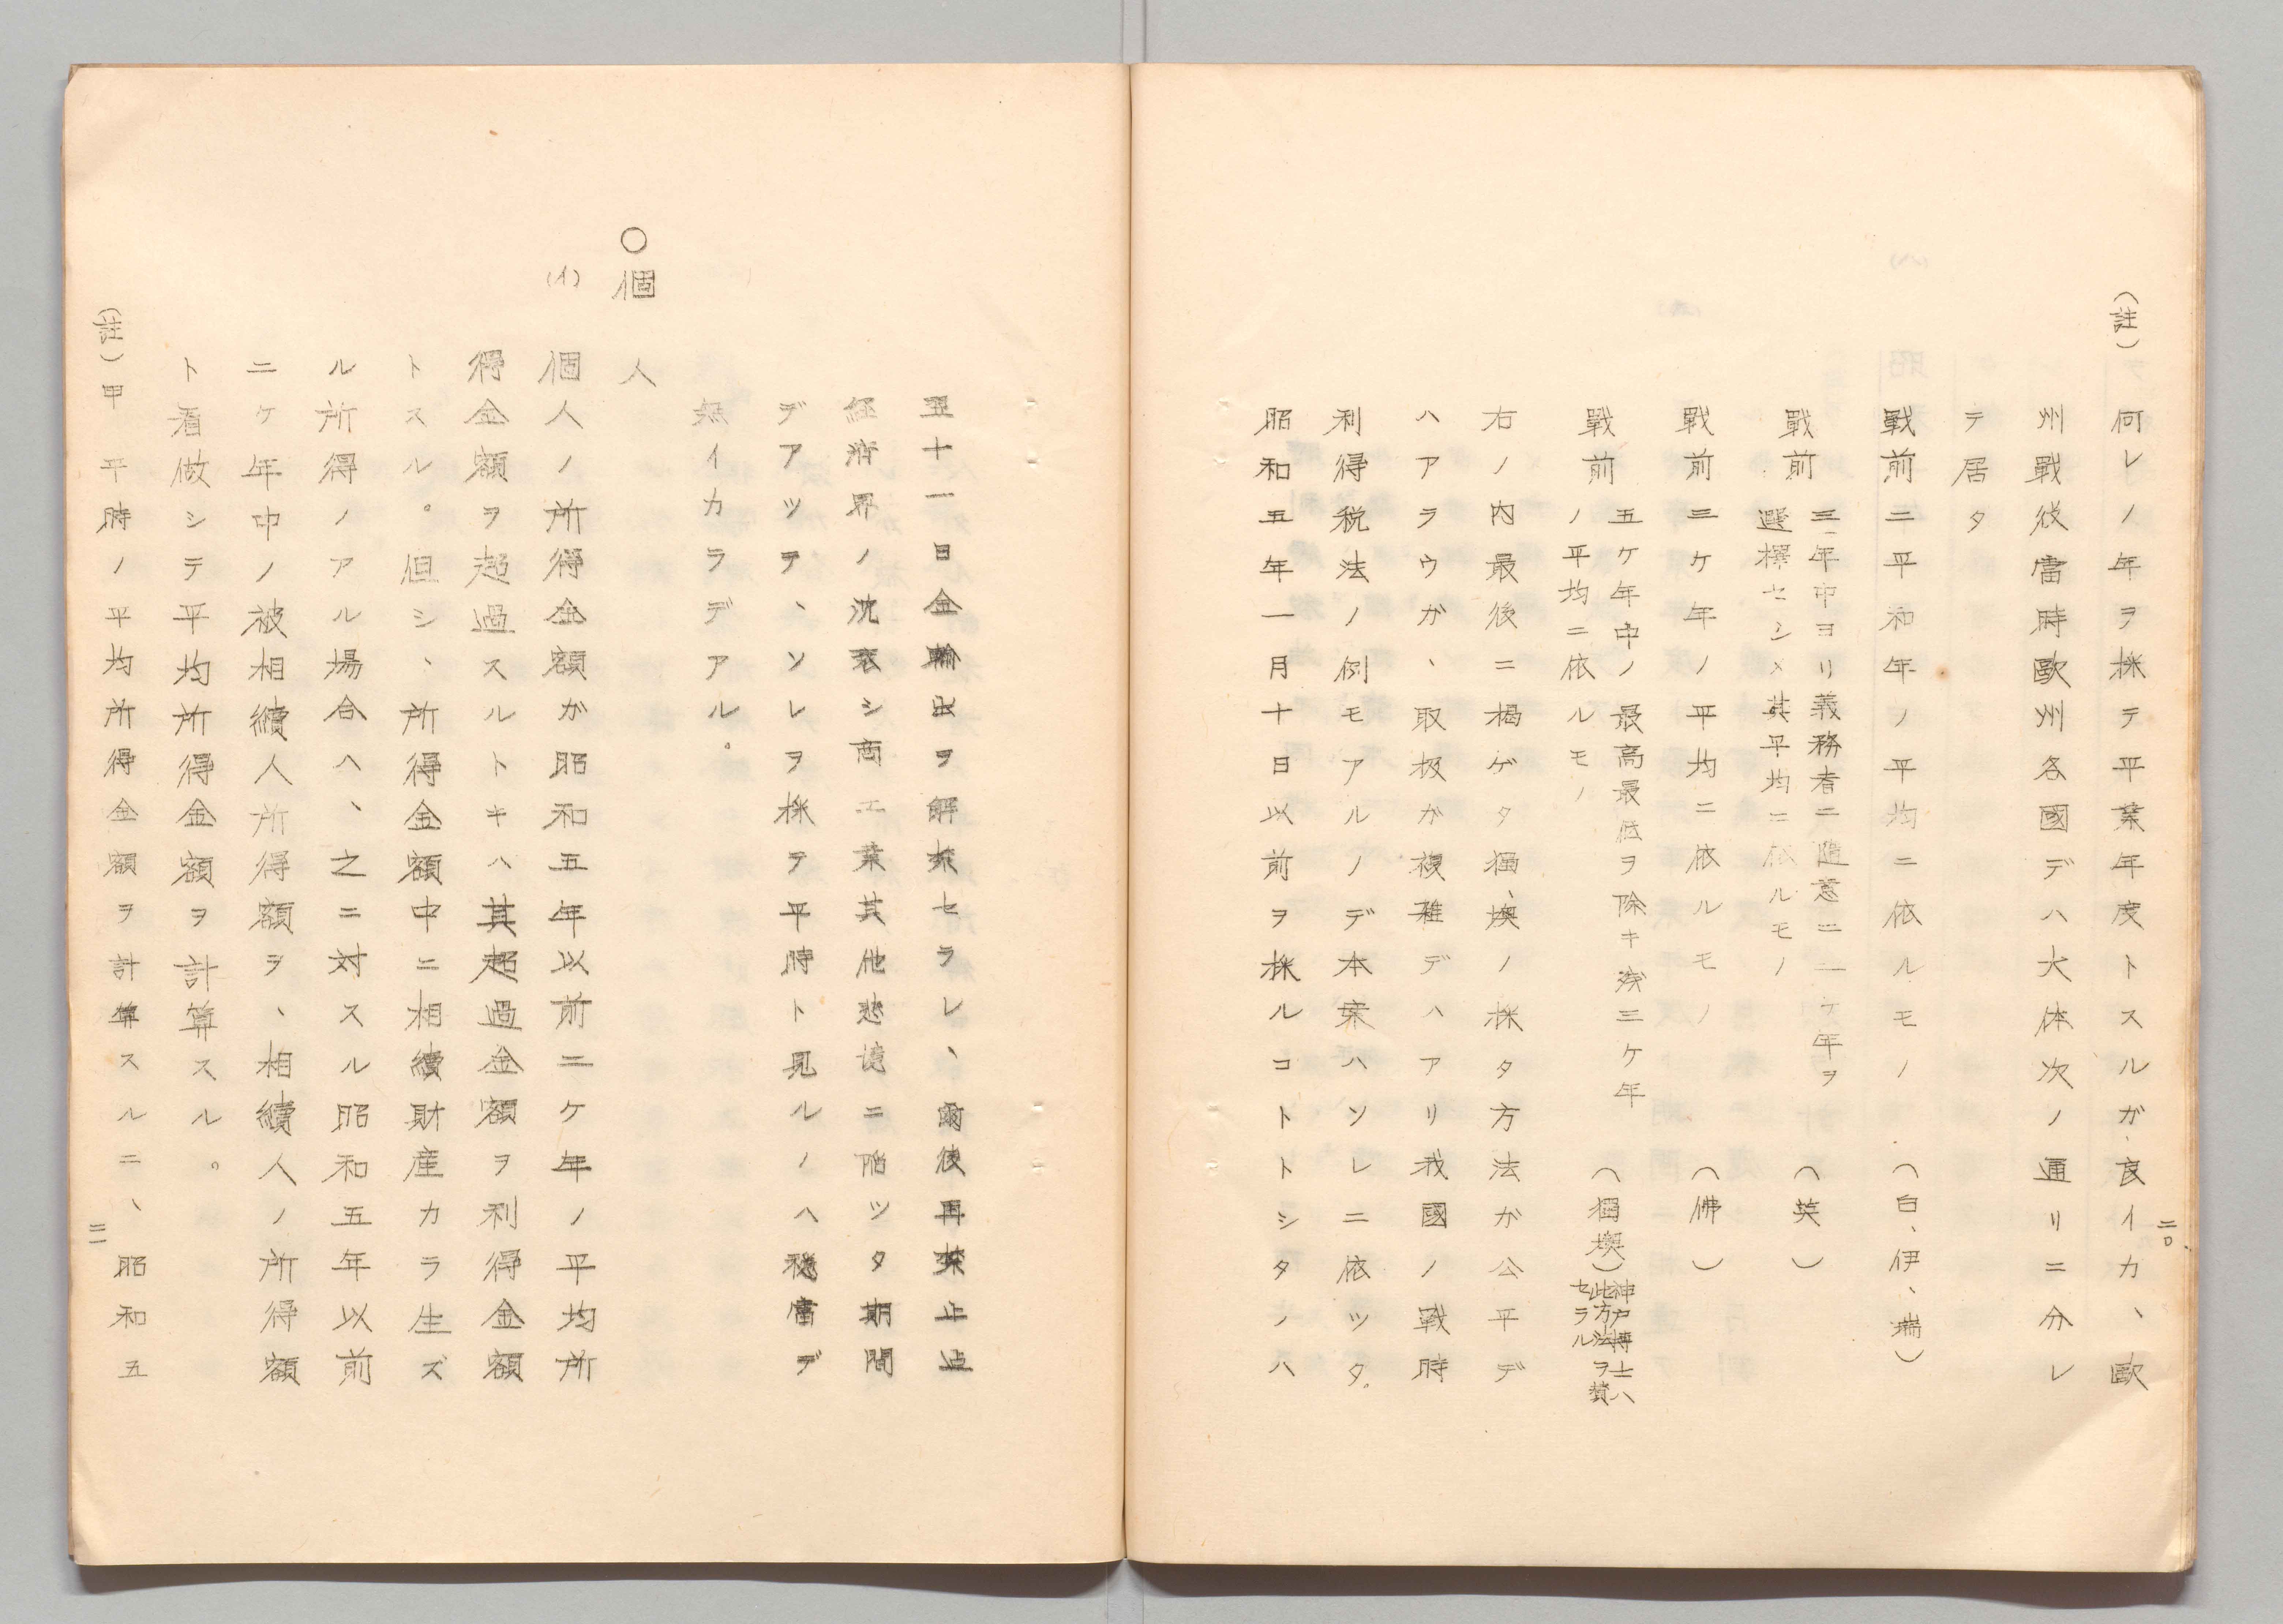 (註)何レノ年ヲ採テ平業年度トスルガ良イカ、歐
州戰後當時歐州各國デハ大体次ノ通リニ分レ
テ居タ
戰前二平和年ノ平均ニ依ルモノ (白、伊、端)
戰前 三年中ヨリ義務者ニ隨意ニ二ケ年ヲ
選擇セシメ其平均ニ依ルモノ (英)
戰前三ケ年ノ平均ニ依ルモノ (佛)
戰前 五ケ年中ノ最高最低ヲ除キ残三ケ年
ノ平均ニ依ルモノ (獨墺)
神戸博士ハ
此方法ヲ賛
セラル
右ノ内最後ニ揭ゲタ獨、墺ノ採タ方法が公平デ
ハアラウが、取扱か複雜デハアリ我國ノ戰時
利得税法ノ例モアルノデ本案ハソレニ依ツタ。
昭和五年一月十日以前ヲ採ルコトトシタノハ
二〇
五十一日金輸出ヲ解禁セラレ、爾後再禁止迠
経済界ノ沈衰シ商工業其他悲境ニ陥ツタ期間
デアツテ、ソレヲ採テ平時ト見ルノハ穏當デ
無イカラデアル。
○個人
(イ) 個人ノ所得金額が昭和五年以前二ケ年ノ平均所
得金額ヲ超過スルトキハ其超過金額ヲ利得金額
トスル。但シ、所得金額中ニ相續財産カラ生ズ
ル所得ノアル場合ハ、之ニ対スル昭和五年以前
二ケ年中ノ被相續人所得額ヲ、相續人ノ所得額
ト看做シテ平均所得金額ヲ計算スル。
(註)甲 平時ノ平均所得金額ヲ計算スルニ、昭和五
二一